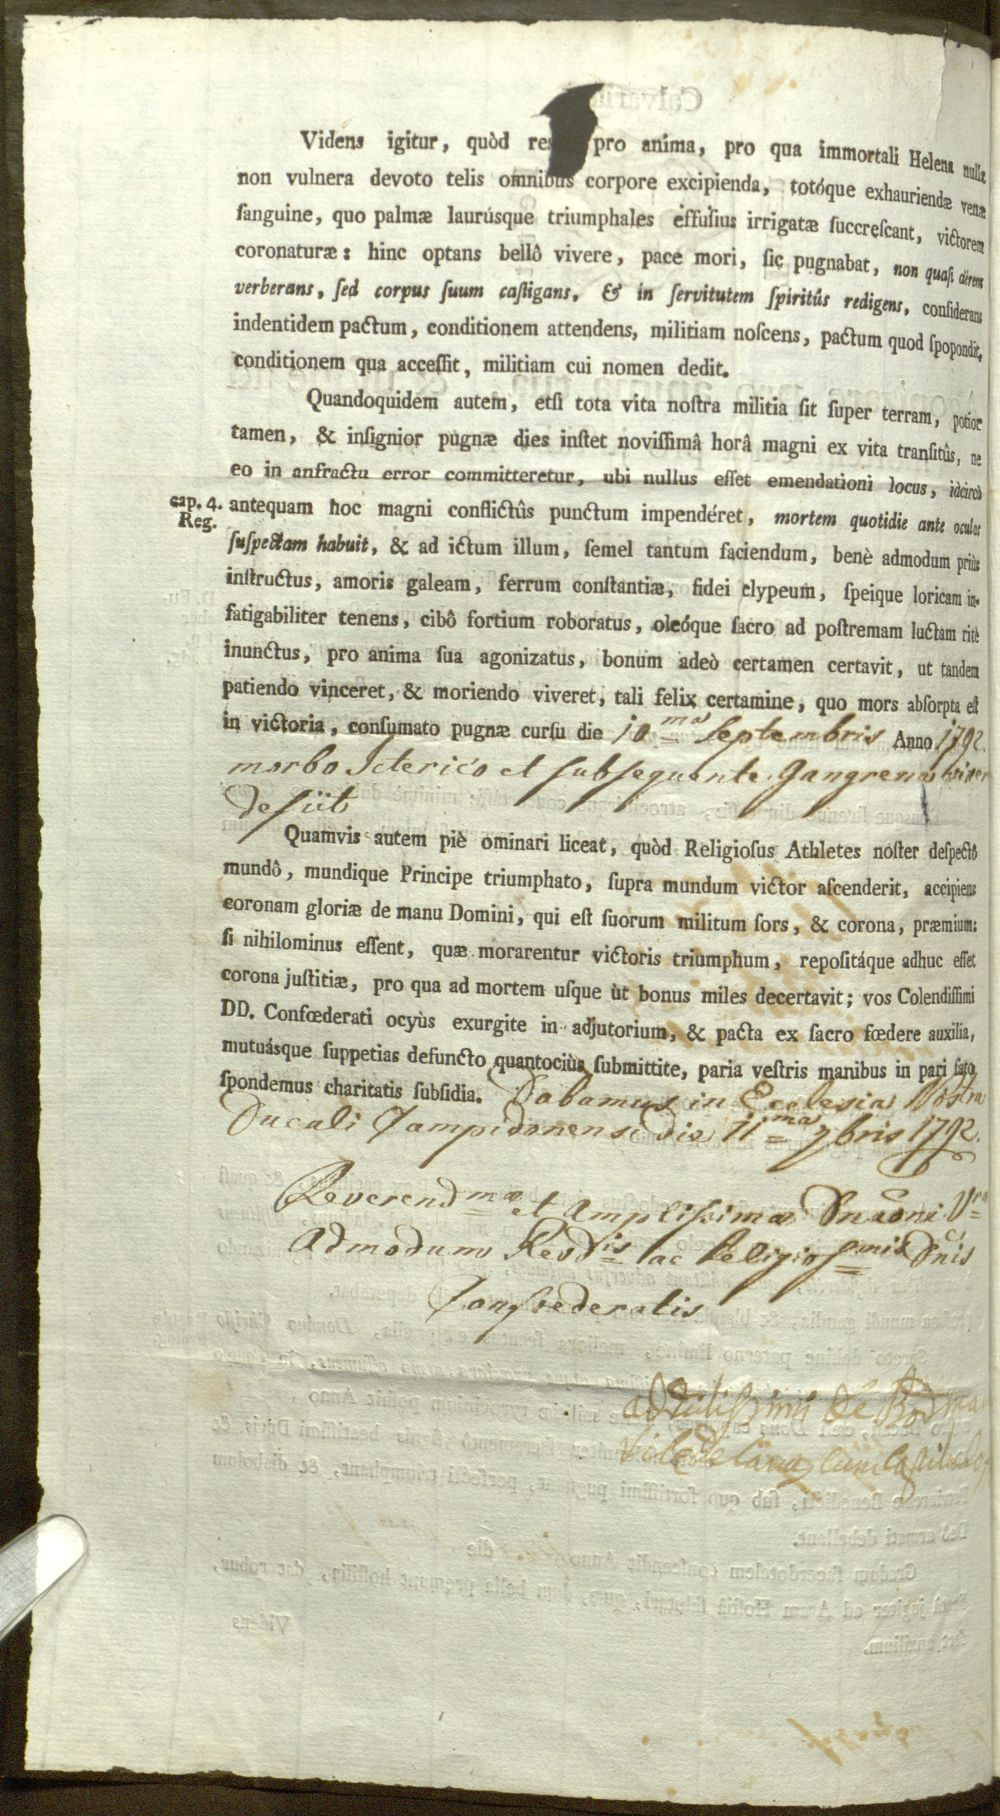 Videns igitur, quòd res pro anima, pro qua immortali Helena nulla
non vulnera devoto telis omnibus corpore excipienda, totóque exhauriendæ venæ
ſanguine, quo palmæ laurúsque triumphales effuſius irrigatæ ſuccreſcant, victorem
coronaturæ: hinc optans bellô vivere, pace mori, ſic pugnabat, non quaſi aërem
verberans, ſed corpus ſuum caſtigans, & in ſervitutem ſpiritûs redigens, conſiderans
indentidem pactum, conditionem attendens, militiam noſcens, pactum quod ſpopondit,
conditionem qua acceſſit, militiam cui nomen dedit.
Quandoquidem autem, etſi tota vita noſtra militia ſit ſuper terram, potior
tamen, & inſignior pugnæ dies inſtet noviſſimâ horâ magni ex vita tranſitûs, ne
eo in anfractu error committeretur, ubi nullus eſſet emendationi locus, idcircò
cap. 4. antequam hoc magni conflictûs punctum impendéret, mortem quotidie ante oculos
Reg.
ſuſpectam habuit, & ad ictum illum, ſemel tantum faciendum, benè admodum priùs
inſtructus, amoris galeam, ferrum conſtantiæ, fidei clypeum, ſpeique loricam in-
fatigabiliter tenens, cibô fortium roboratus, oleóque ſacro ad poſtremam luctam ritè
inunctus, pro anima ſua agonizatus, bonum adeò certamen certavit, ut tandem
patiendo vinceret, & moriendo viveret, tali felix certamine, quo mors abſorpta eſt
in victoria, conſumato pugnæ curſu die 10ma Septembris Anno 1792.
morbo Icterico et subsequente Gangrena vivere
desiit
Quamvis autem piè ominari liceat, quòd Religioſus Athletes noſter deſpectô
mundô, mundique Principe triumphato, ſupra mundum victor aſcenderit, accipiens
coronam gloriæ de manu Domini, qui eſt ſuorum militum ſors, & corona, præmium:
ſi nihilominus eſſent, quæ morarentur victoris triumphum, repoſitáque adhuc eſſet
corona juſtitiæ, pro qua ad mortem uſque ùt bonus miles decertavit; vos Colendiſſimi
DD. Confœderati ocyùs exurgite in adjutorium, & pacta ex ſacro fœdere auxilia,
mutuásque ſuppetias defuncto quantociùs ſubmittite, paria veſtris manibus in pari fato
ſpondemus charitatis ſubſidia. Dabamus in Ecclesia Nostra
Ducali Campidonensi die 11ma 7bris 1792.
Reverendmæ et Amplissimæ Dnaoni Vræ
Admodum Revdis ac Religiosmis Dnis
Confœderatis